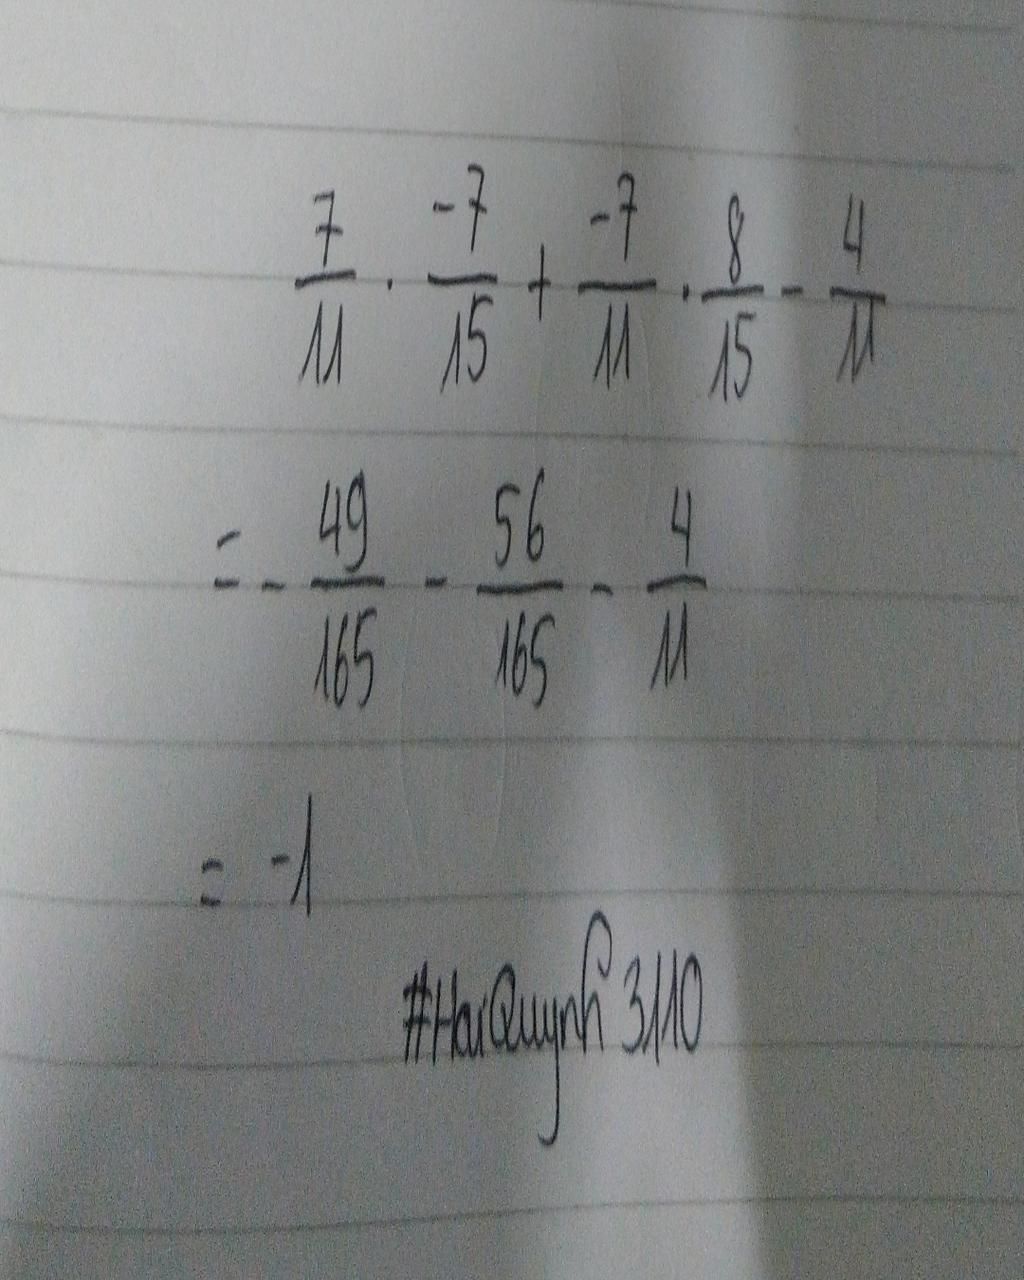 7/11 . -7/15 + -7/11 . 8/15 - 4/11
= - 49/165 - 56/165 - 4/11
= -1
#HaiQuynh 3110